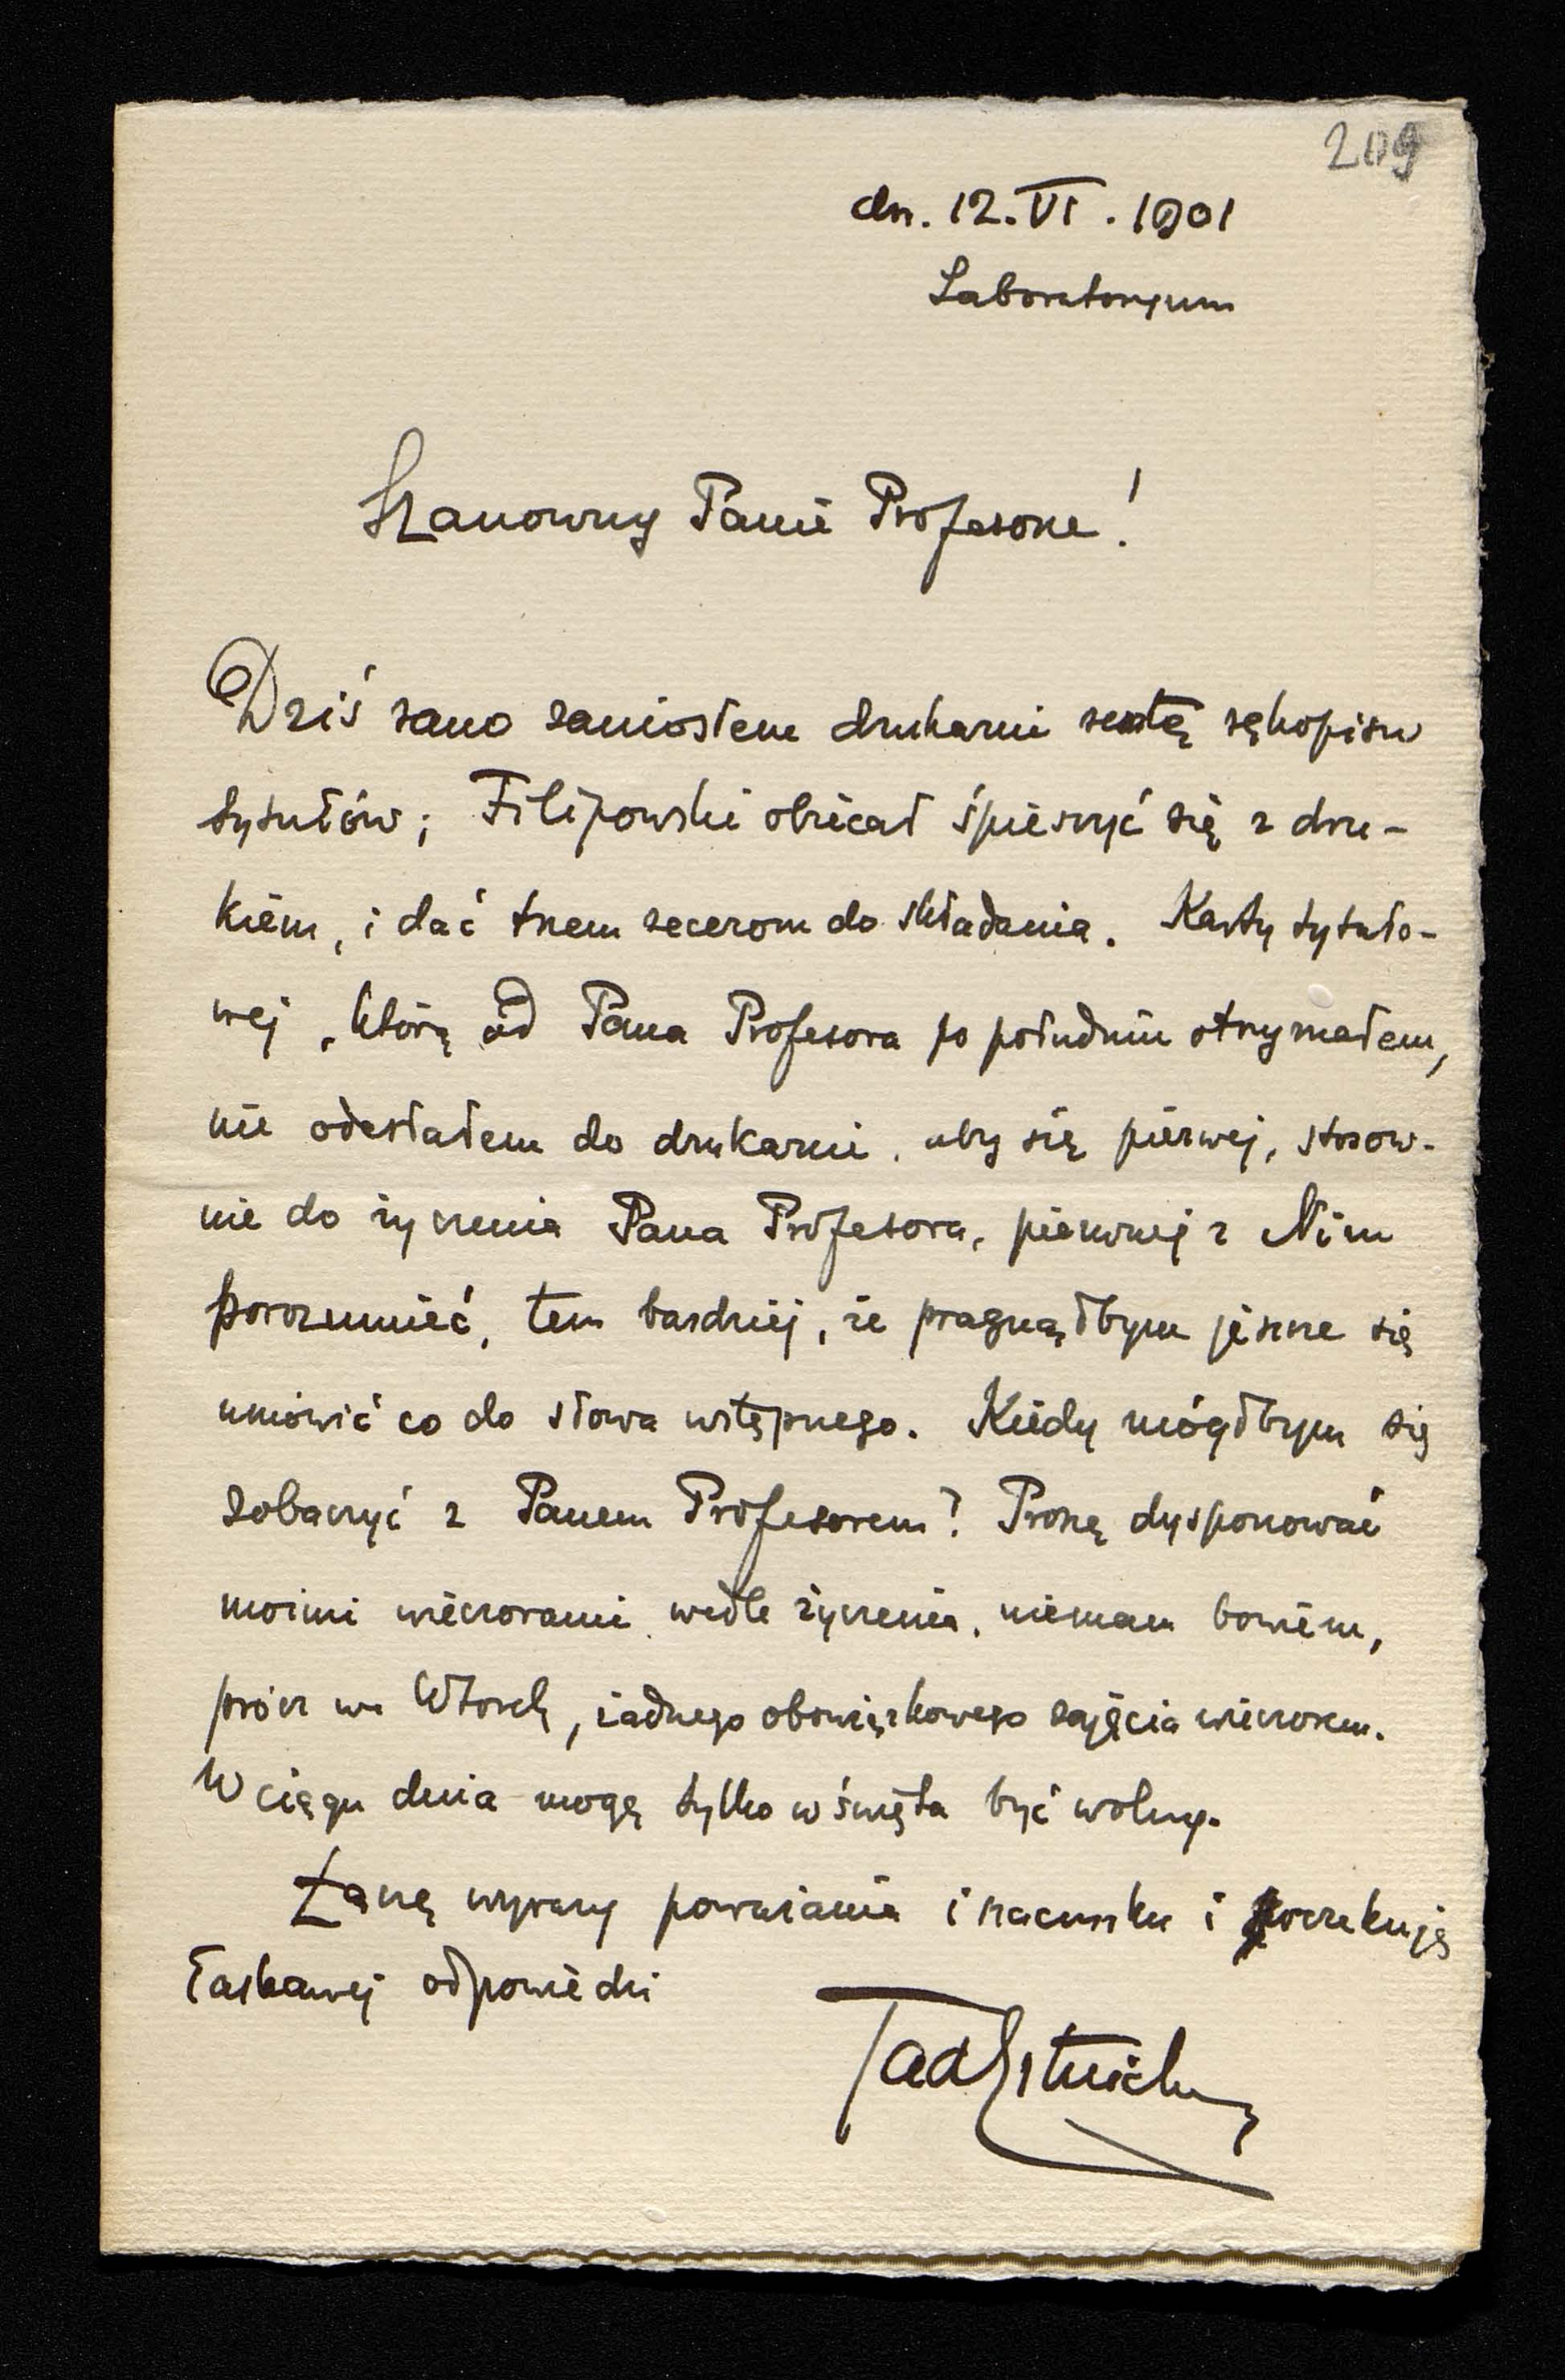 209
dn. 12. VI. 1901
Laboratorjum
Szanowny Panie Profesorze!
Dziś rano zaniosłem drukarni resztę rękopisu
tytułów; Filipowski obiecał śpieszyć się z dru-
kiem, i dać trzem zecerom do składania. Karty tytuło-
wej, którą od Pana Profesora po południu otrzymałem,
nie odesłałem do drukarni, aby się pierwej, stosow-
nie do życzenia Pana Profesora, pierwej z Nim
porozumieć, tem bardziej, że pragnąłbym jeszcze się
umówić co do słowa wstępnego. Kiedy mógłbym się
zobaczyć z Panem Profesorem? Proszę dysponować
moimi wieczorami wedle życzenia, niemam bowiem,
prócz we Wtorek, żadnego obowiązkowego zajęcia wieczorem.
W ciągu dnia mogę tylko w święta być wolny.
Łączę wyrazy poważania i szacunku i oczekuję
łaskawej odpowiedzi
TadEstreicher